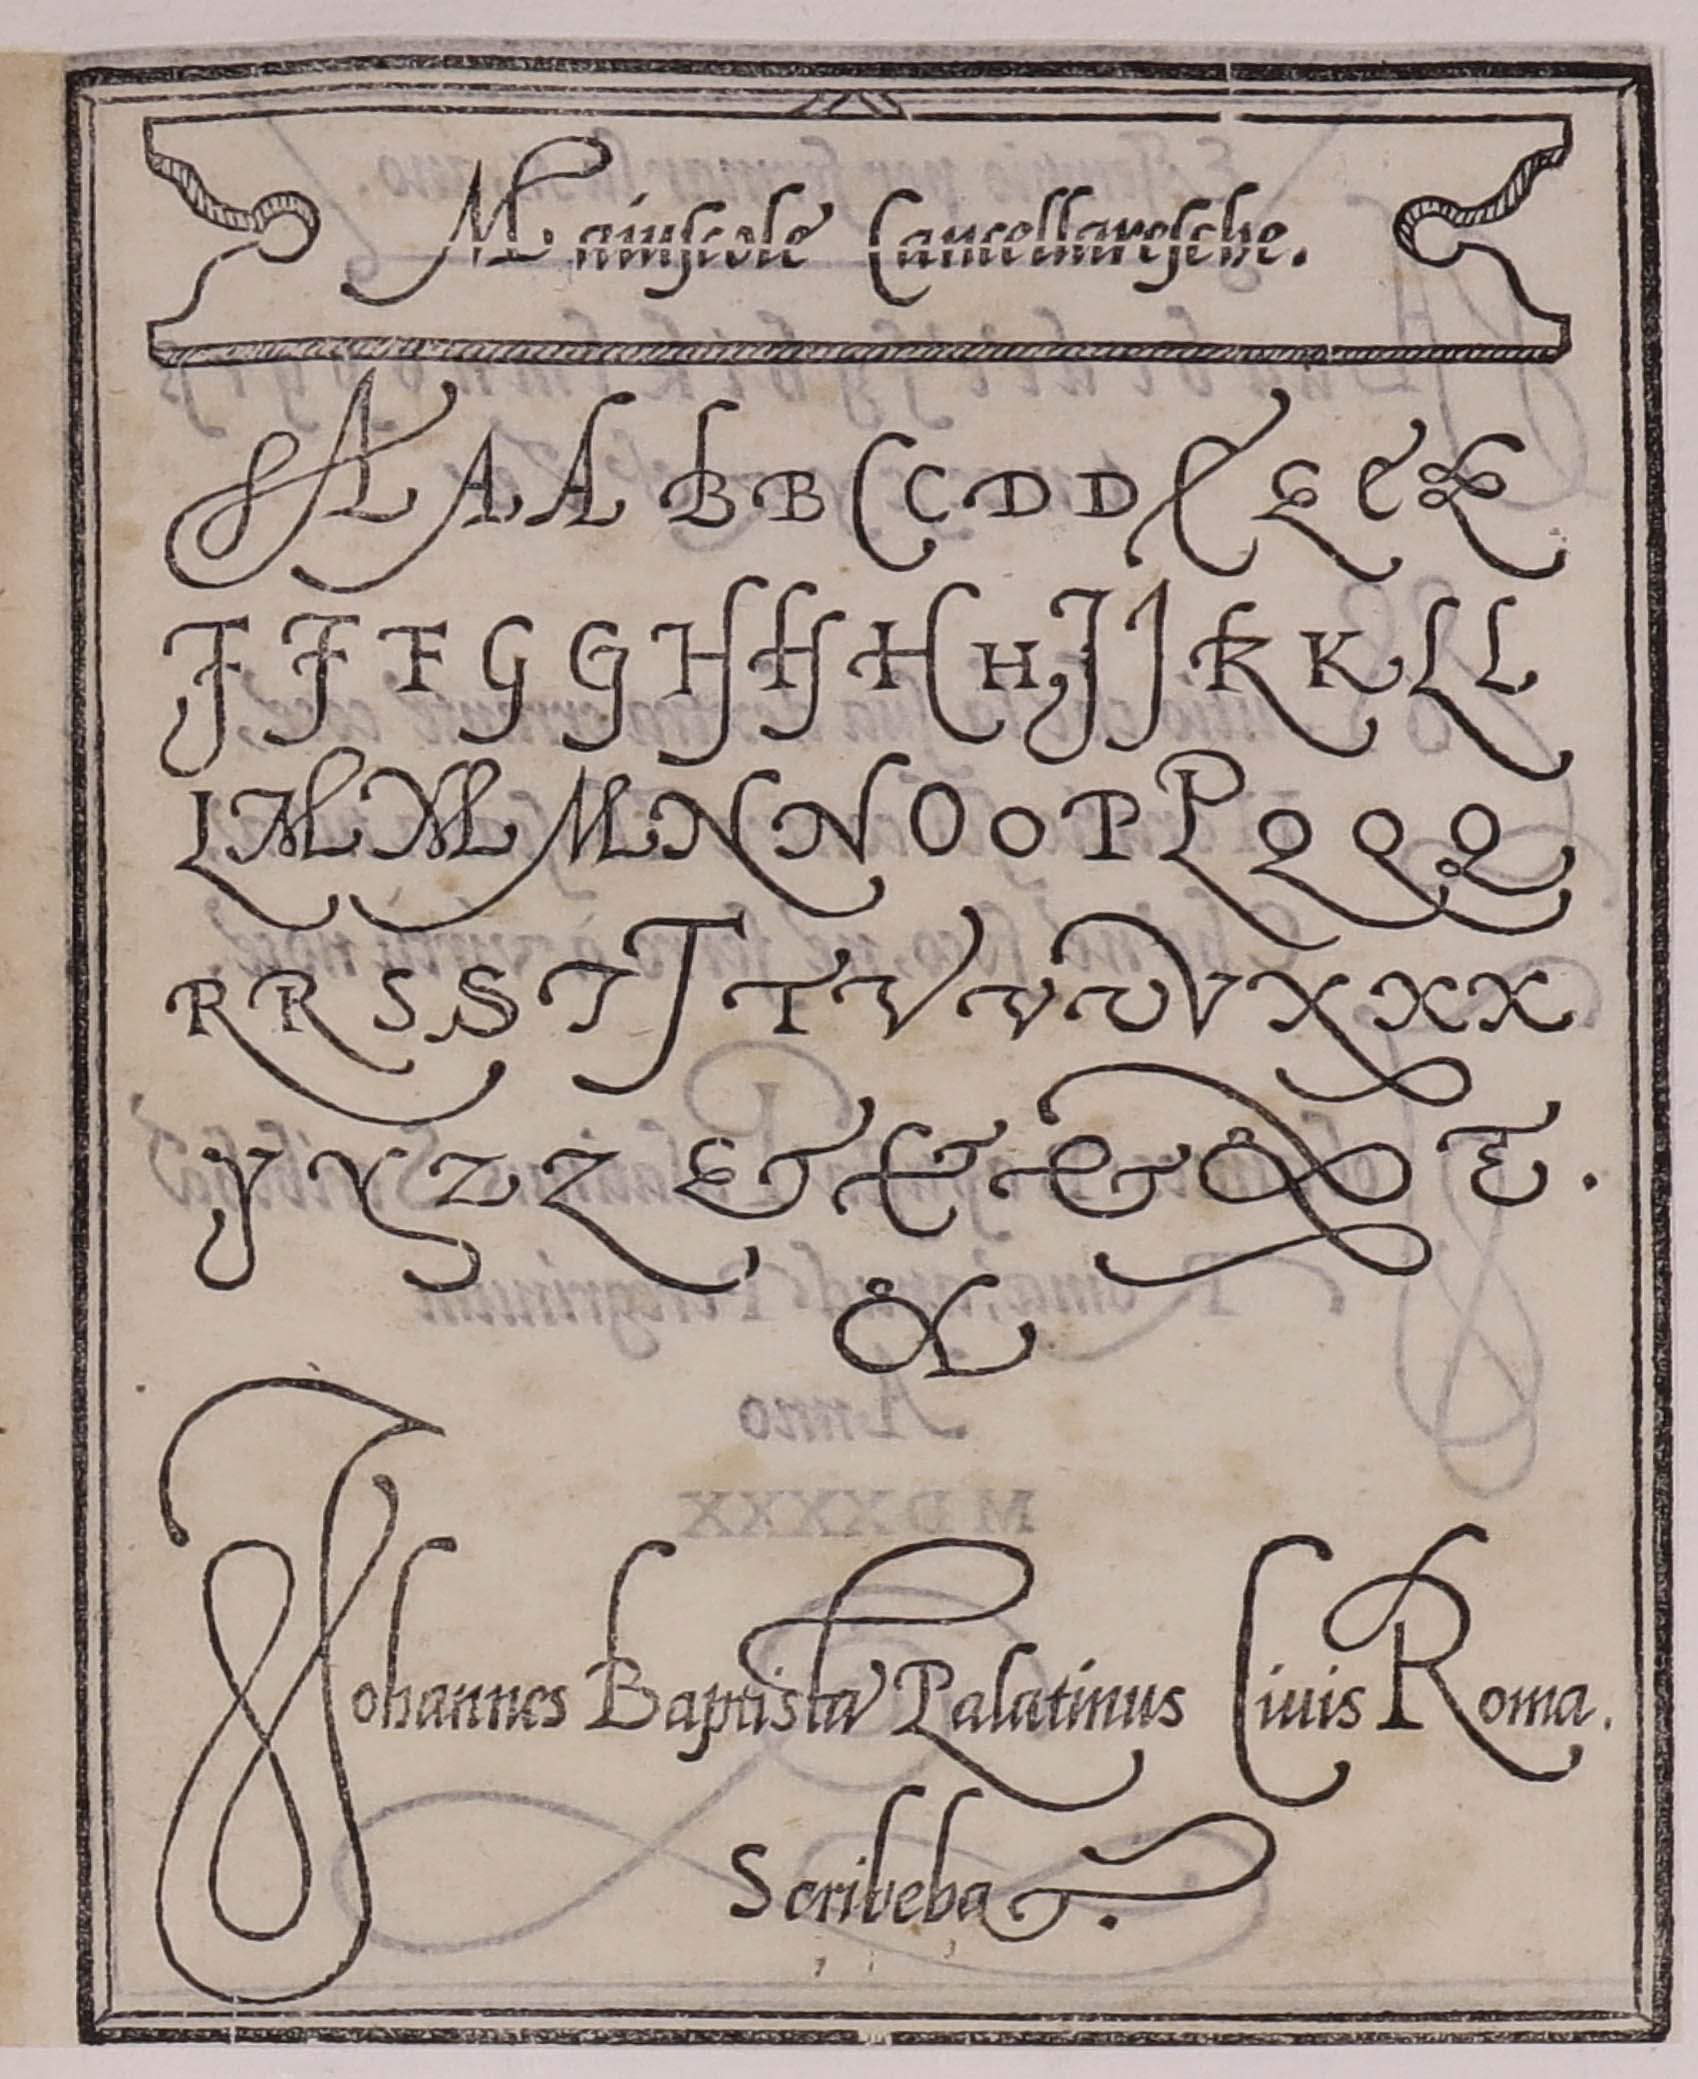 Maiuscole Cancellaresche.
A A A B B C C D D E E E E
F F F G G H H H H J J K K L L
L M M M N N O O P P Q Q Q
R R S S T T T V V V V X X X
Y Y Z Z & & & & & .
&
Johannes Baptista Palatinus Ciuis Roma.
Scribebat.